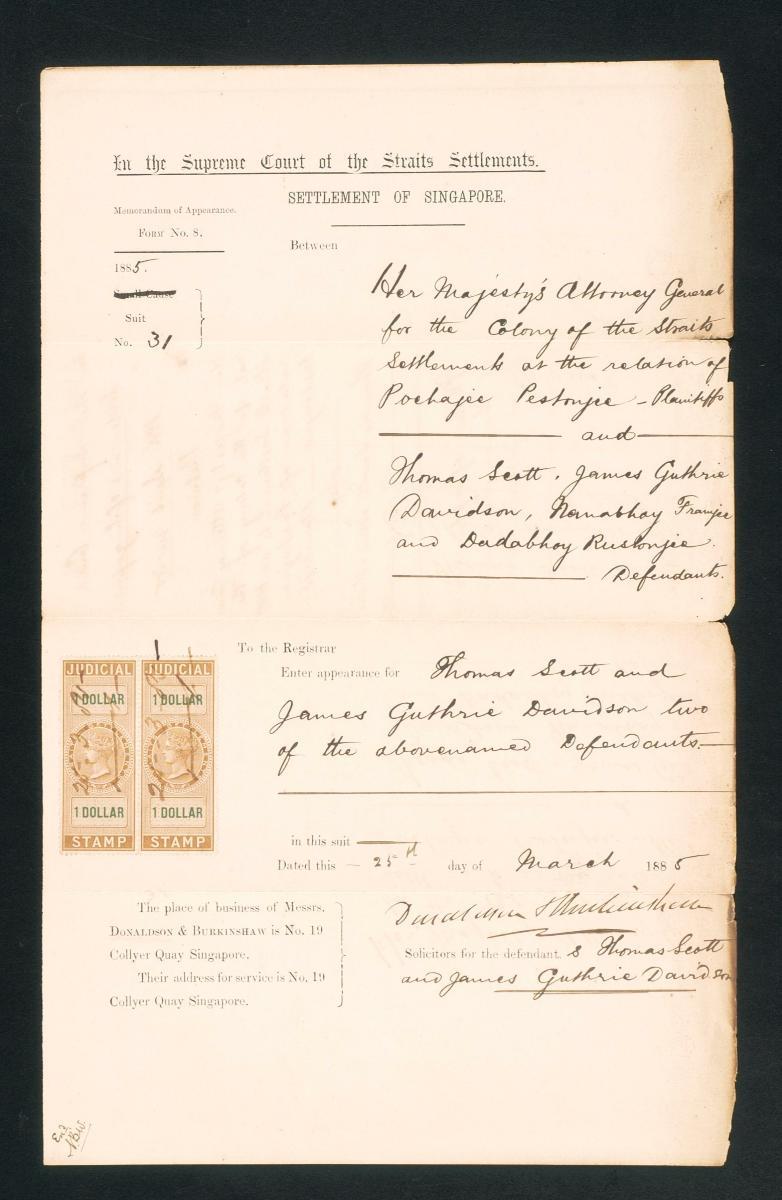 In the Supreme Court of the Straits Settlements.
SETTLEMENT OF SINGAPORE.
Memorandum of Appearance.
FORM No. 8.
Between
1885.
Small Cause
Suit
No. 31
Her Majesty's Attorney General
for the Colony of the Straits
Settlements at the relation of
Pochajee Pestonjee - Plaintiffs
and
Thomas Scott, James Guthrie
Davidson, Nanabhoy Framjee
and Dadabhoy Rustonjee.
Defendants.
To the Registrar
Enter appearance for Thomas Scott and
James Guthrie Davidson two
of the abovenamed Defendants.
in this suit
Dated this 25th day of March 1885
JUDICIAL
1 DOLLAR
1 DOLLAR
STAMP
JUDICIAL
1 DOLLAR
1 DOLLAR
STAMP
The place of business of Messrs.
DONALDSON & BURKINSHAW is No. 19
Collyer Quay Singapore.
Their address for service is No. 19
Collyer Quay Singapore.
Donaldson & Burkinshaw
Solicitors for the defendant. s Thomas Scott
and James Guthrie Davidson